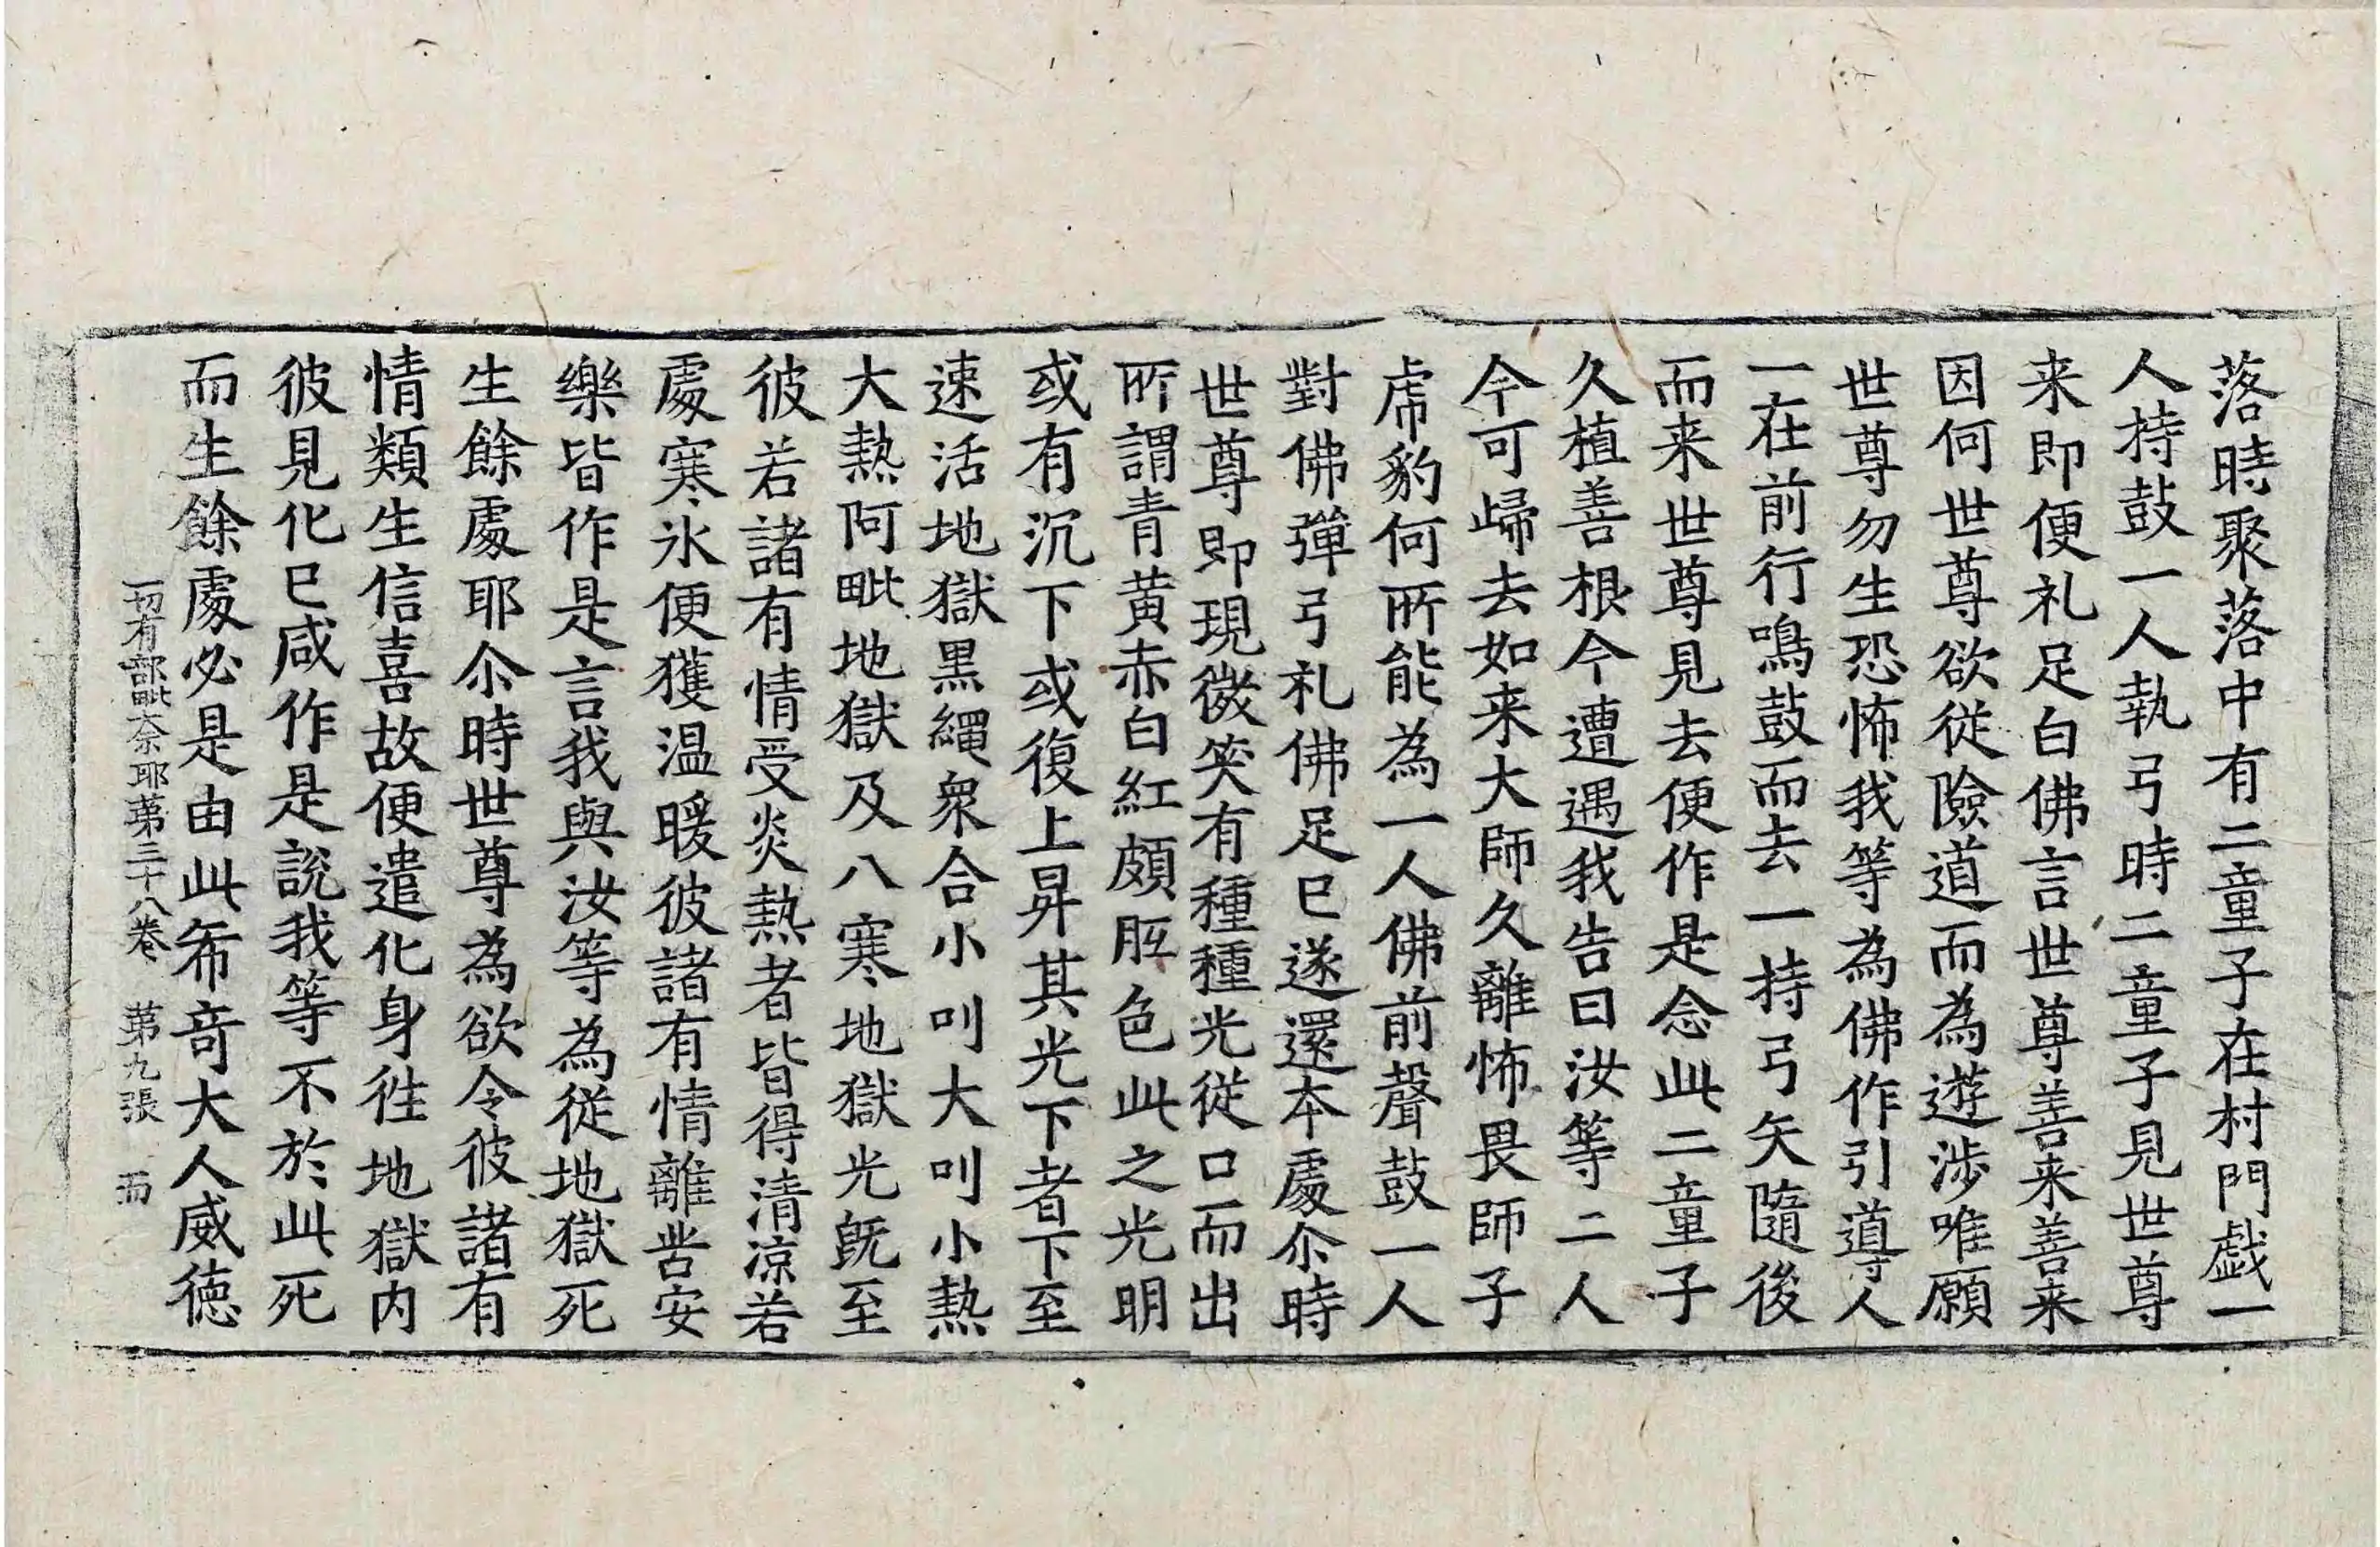 落時聚落中有二童子在村門戯一
人持鼓一人執弓時二童子見世尊
来即便礼足白佛言世尊善来善来
因何世尊欲從險道而為遊涉唯願
世尊勿生恐怖我等為佛作引導人
一在前行鳴鼓而去一持弓矢隨後
而来世尊見去便作是念此二童子
久植善根今遭遇我告曰汝等二人
今可歸去如来大師久離怖畏師子
虎豹何所能為一人佛前聲鼓一人
對佛彈弓礼佛足已遂還本處尒時
世尊即現微笑有種種光從口而出
所謂青黄赤白紅頗胝色此之光明
或有沉下或復上昇其光下者下至
速活地獄黒繩衆合小叫大叫小熱
大熱阿毗地獄及八寒地獄光既至
彼若諸有情受炎熱者皆得清凉若
處寒氷便獲温暖彼諸有情離苦安
樂皆作是言我與汝等為從地獄死
生餘處耶尒時世尊為欲令彼諸有
情類生信喜故便遣化身往地獄内
彼見化已咸作是說我等不於此死
而生餘處必是由此希奇大人威徳
一切有部毗奈耶第三十八卷 第九張 而